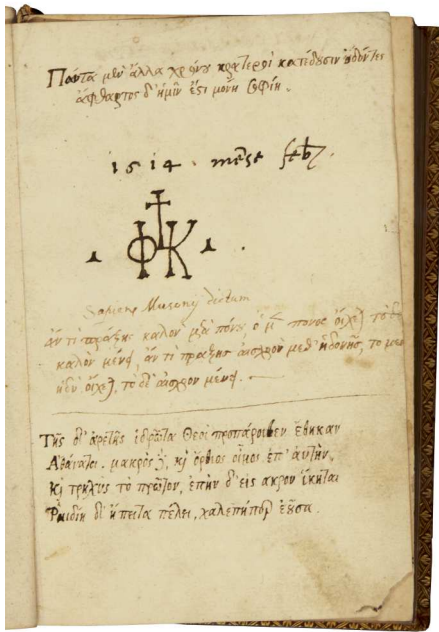 Πάντα μὲν ἄλλα χρόνου κρατεροὶ κατέδουσιν ὀδόντες
ἄφθαρτος δ' ἡμῖν ἐστι μούνη Σοφίη.
1514. mēse feb
ΦΚ
Musonij dictum
ἄν τι πράξῃς καλὸν μετὰ πόνου, ὁ μὲν πόνος οἴχεται τὸ δὲ
καλὸν μένει, ἄν τι πράξῃς αἰσχρὸν μεθ' ἡδονῆς, τὸ μὲν
ἡδὺ οἴχεται, τὸ δὲ αἰσχρὸν μένει.
Τῆς δ' ἀρετῆς ἱδρῶτα Θεοὶ προπάροιθεν ἔθηκαν
Ἀθάνατοι. μακρὸς δὲ καὶ ὄρθιος οἶμος ἐπ' αὐτὴν,
Καὶ τρηχὺς τὸ πρῶτον, ἐπὴν δ' εἰς ἄκρον ἵκηται
Ῥηιδίη δ' ἤπειτα πέλει, χαλεπή περ ἐοῦσα.